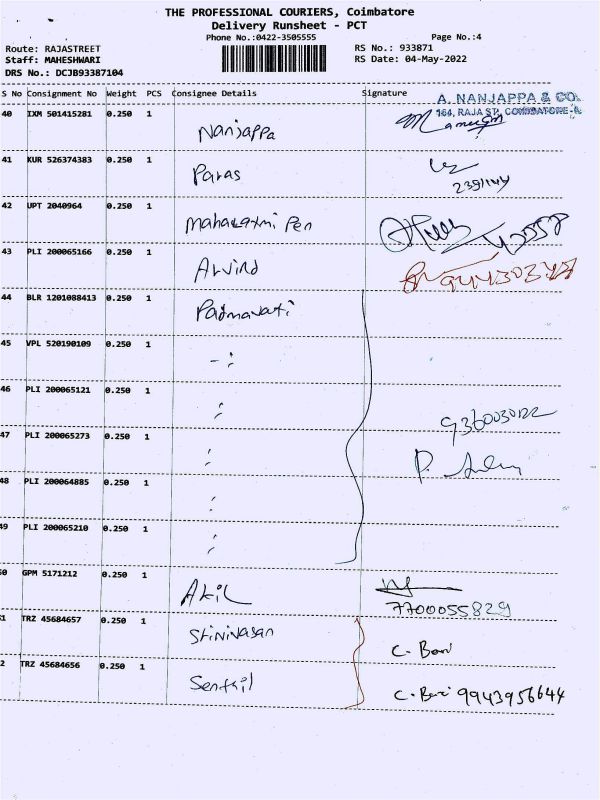 THE PROFESSIONAL COURIERS, Coimbatore
Delivery Runsheet - PCT
Phone No.:0422-3505555
Page No.:4
Route: RAJASTREET
RS No.: 933871
Staff: MAHESHWARI
RS Date: 04-May-2022
DRS No.: DCJB93387104
S No Consignment No Weight PCS Consignee Details Signature
A. NANJAPPA & CO.
164, RAJA ST, COIMBATORE-1.
40 IXM 501415281 0.250 1 Nanjappa
41 KUR 526374383 0.250 1 Paras
42 UPT 2040964 0.250 1 Mahalaxmi Pen
43 PLI 200065166 0.250 1 Arvind
44 BLR 1201088413 0.250 1 Padmavati
45 VPL 520190109 0.250 1
46 PLI 200065121 0.250 1
47 PLI 200065273 0.250 1
48 PLI 200064885 0.250 1
49 PLI 200065210 0.250 1
0 GPM 5171212 0.250 1 Akil
7700055829
1 TRZ 45684657 0.250 1 Srinivasan
2 TRZ 45684656 0.250 1 Senthil 9943956644